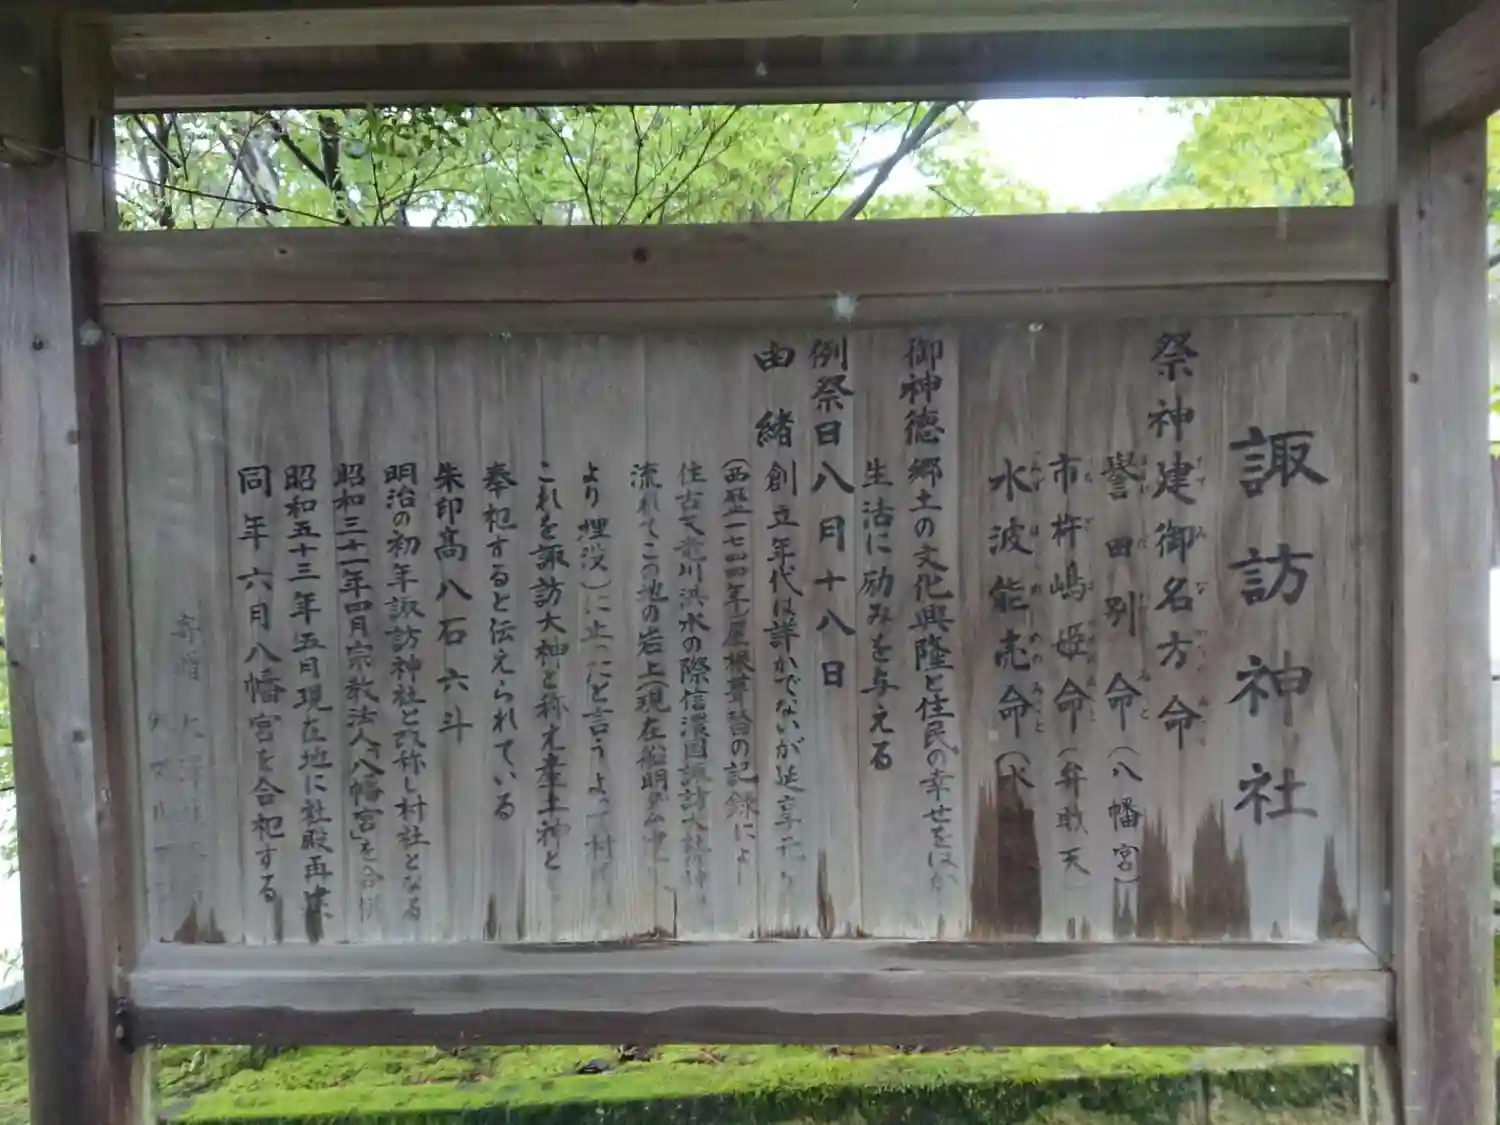 諏訪神社
祭神建御名方命
誉田別命(八幡宮)
市杵嶋姫命(弁戝天)
水波能売命(水
御神徳 郷土の文化興隆と住民の幸せをはか
生活に励みを与える
例祭日八月十八日
由緒 創立年代は詳かでないが延享元
(西歴一七四四年)屋根葺替の記録によ
住古天竜川洪水の際信濃国諏訪大社
流れてこの地の岩上(現在船明ダム
より埋没)に止ったと言うよって村
これを諏訪大神と称え産土神と
奉祀すると伝えられている
朱印高八石六斗
明治の初年諏訪神社と改称し村社となる
昭和三十一年四月宗教法人「八幡宮」を合併
昭和五十三年五月現在地に社殿再建
同年六月八幡宮を合祀する
寄贈